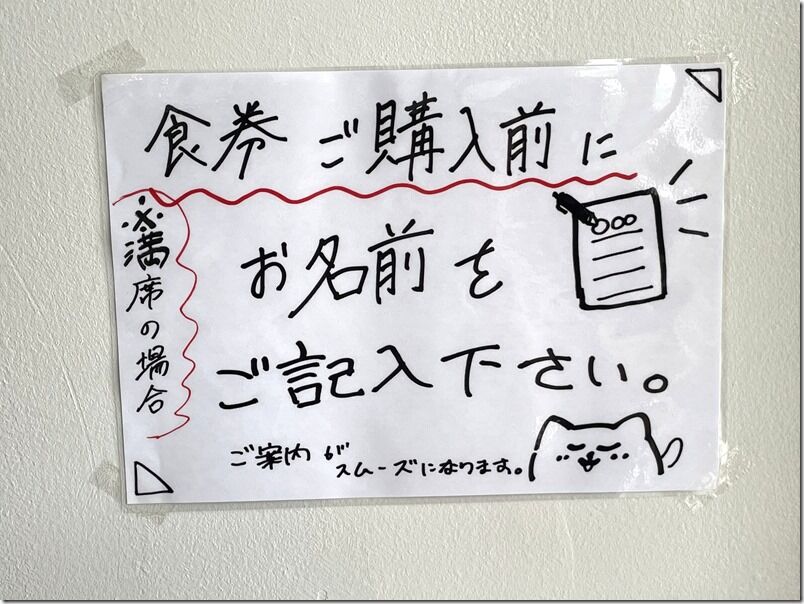 食券 ご購入前に
※満席の場合
お名前を
ご記入下さい。
ご案内がスムーズになります。